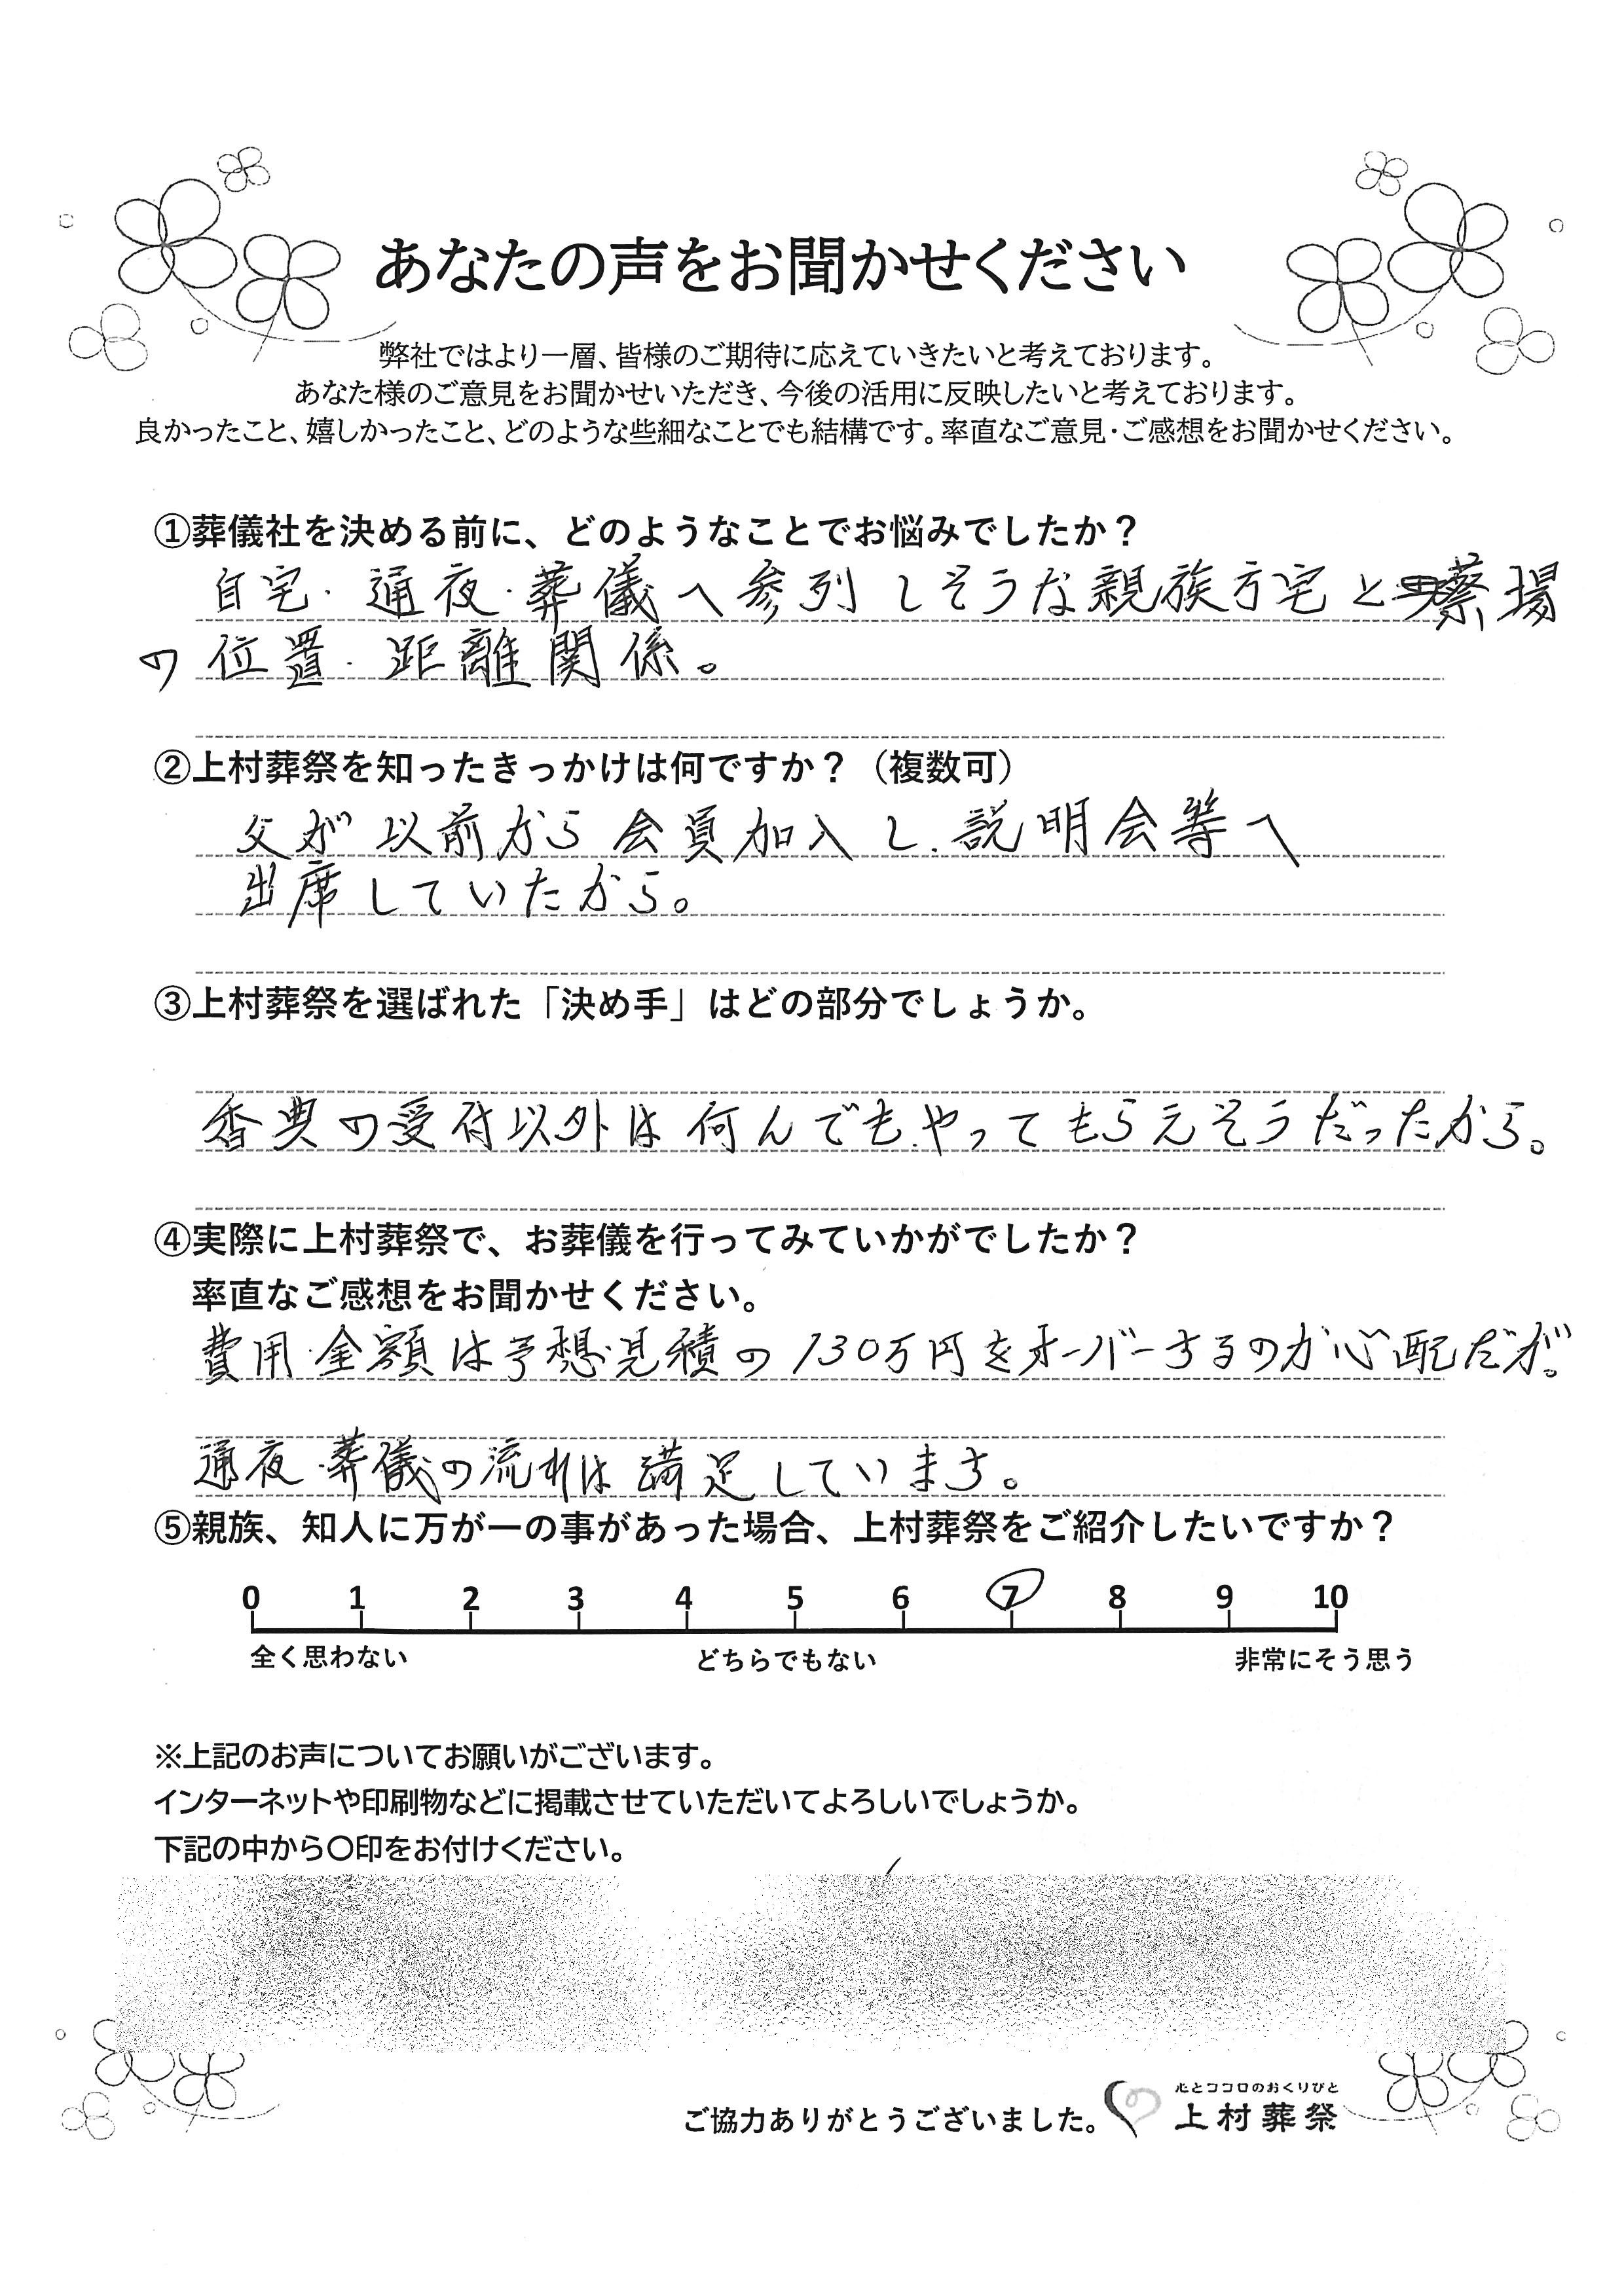 あなたの声をお聞かせください
弊社ではより一層、皆様のご期待に応えていきたいと考えております。
あなた様のご意見をお聞かせいただき、今後の活用に反映したいと考えております。
良かったこと、嬉しかったこと、どのような些細なことでも結構です。率直なご意見・ご感想をお聞かせください。
①葬儀社を決める前に、どのようなことでお悩みでしたか？
自宅・通夜・葬儀へ参列しそうな親族方宅と場
の位置・距離関係。
②上村葬祭を知ったきっかけは何ですか？（複数可）
父が以前から会員加入し、説明会等へ
出席していたから。
③上村葬祭を選ばれた「決め手」はどの部分でしょうか。
香典の受付以外は何んでも、やってもらえそうだったから。
④実際に上村葬祭で、お葬儀を行ってみていかがでしたか？
率直なご感想をお聞かせください。
費用・金額は予想・見積の130万円をオーバーするのか心配だが。
通夜・葬儀の流れは満足しています。
⑤親族、知人に万が一の事があった場合、上村葬祭をご紹介したいですか？
0 1 2 3 4 5 6 7 8 9 10
全く思わない どちらでもない 非常にそう思う
※上記のお声についてお願いがございます。
インターネットや印刷物などに掲載させていただいてよろしいでしょうか。
下記の中から〇印をお付けください。
心とココロのおくりびと
ご協力ありがとうございました。 上村葬祭